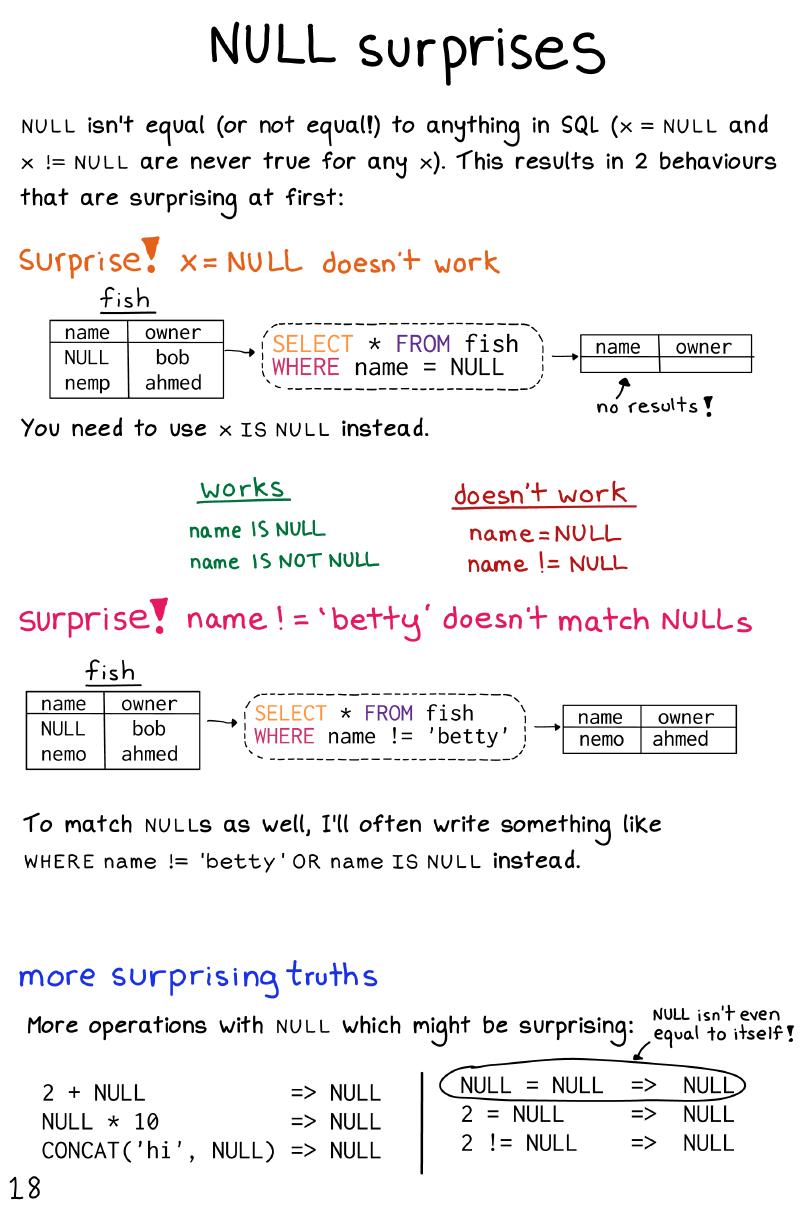 NULL surprises
NULL isn't equal (or not equal!) to anything in SQL (x = NULL and
x != NULL are never true for any x). This results in 2 behaviours
that are surprising at first:
Surprise! x = NULL doesn't work
fish
name owner
NULL bob
nemp ahmed
SELECT * FROM fish
WHERE name = NULL
name owner
no results!
You need to use x IS NULL instead.
works
name IS NULL
name IS NOT NULL
doesn't work
name = NULL
name != NULL
surprise! name != 'betty' doesn't match NULLs
fish
name owner
NULL bob
nemo ahmed
SELECT * FROM fish
WHERE name != 'betty'
name owner
nemo ahmed
To match NULLs as well, I'll often write something like
WHERE name != 'betty' OR name IS NULL instead.
more surprising truths
More operations with NULL which might be surprising:
NULL isn't even
equal to itself!
2 + NULL => NULL
NULL * 10 => NULL
CONCAT('hi', NULL) => NULL
NULL = NULL => NULL
2 = NULL => NULL
2 != NULL => NULL
18